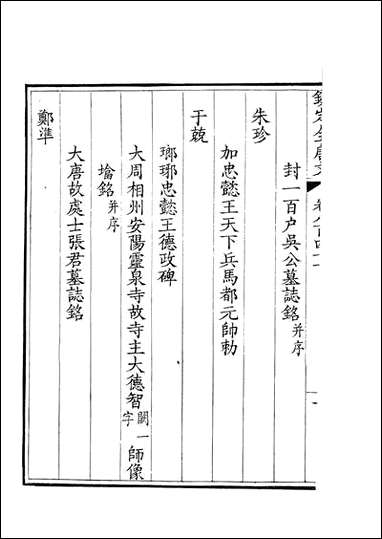 封一百户吳公墓誌銘并序
朱珍
加忠懿王天下兵馬都元帥勅
于兢
瑯琊忠懿王德政碑
大周相州安陽靈泉寺故寺主大德智闕一字師像
墖銘并序
大唐故處士張君墓誌銘
鄭準